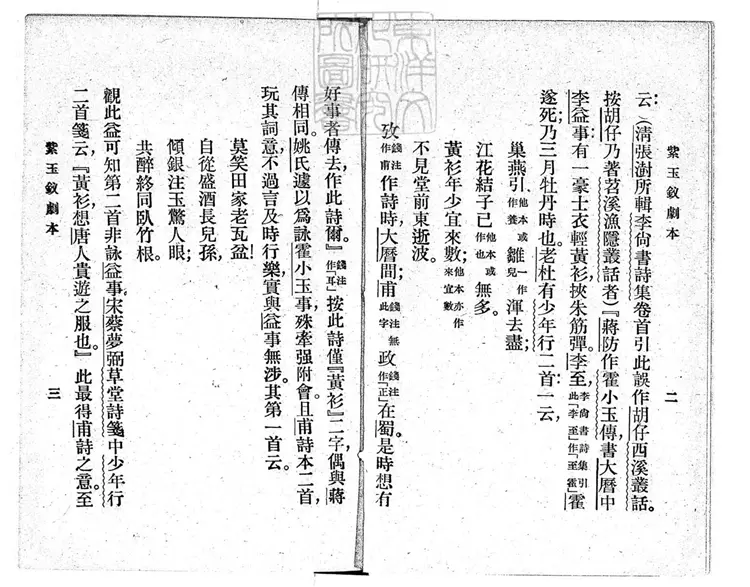 紫玉釵劇本
二
云：(清張澍所輯李尙書詩集卷首引此誤作胡仔西溪叢話。
按胡仔乃著苕溪漁隱叢話者)『蔣防作霍小玉傳書大曆中
李益事：有一豪士衣輕黃衫，挾朱筋彈。李至，李尙書詩集引此「李至」作「至霍」霍
遂死；乃三月牡丹時也。老杜有少年行二首：一云，
巢燕引他本或作養雛一作兒渾去盡，
江花結子已他本或作也無多。
黃衫年少宜來數；他本亦作來宜數
不見堂前東逝波。
攷錢注作甫作詩時，大曆間；甫錢注無此字政錢注作「正」在蜀。是時想有
好事者傳去，作此詩爾。』錢注作「耳」按此詩僅『黃衫』二字，偶與蔣
傳相同。姚氏遽以爲詠霍小玉事，殊牽强附會。且甫詩本二首，
玩其詞意，不過言及時行樂，實與益事無涉。其第一首云。
莫笑田家老瓦盆！
自從盛酒長兒孫，
傾銀注玉驚人眼；
共醉終同臥竹根。
觀此益可知第二首非詠益事。宋蔡夢弼草堂詩箋中少年行
二首箋云，『黃衫，想唐人貴遊之服也。』此最得甫詩之意。至
紫玉釵劇本
三